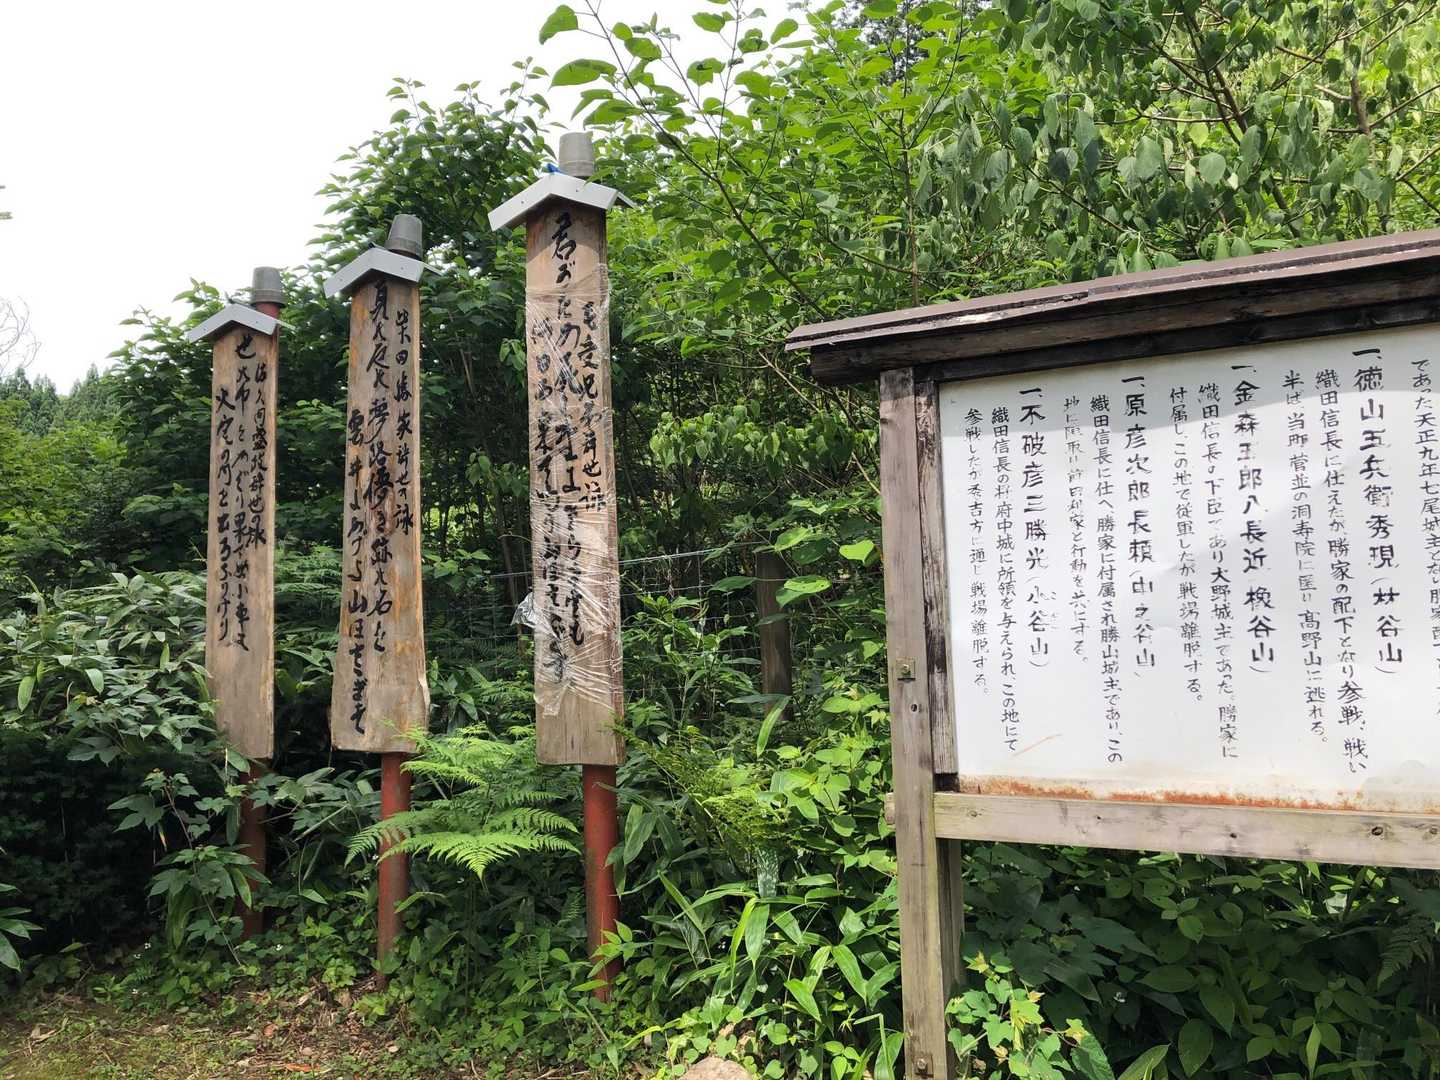 であった天正九年七尾城主となり勝家
一、徳山五兵衛秀現(林谷山)
織田信長に仕えたが勝家の配下となり参戦、戦い
半ば、当郷菅並の洞寿院に匿り高野山に逃れる。
一、金森五郎八長近 橡谷山
織田信長の下臣であり大野城主であった。勝家に
付属し、この地で従軍したが戦場離脱する。
一、原彦次郎長頼(中之谷山)
織田信長に仕へ勝家に付属され勝山城主であり、この
地に陣取り前田利家と行動を共にする。
一、不破彦三勝光(小谷山)
織田信長の枡府中城に所領を与えられ、この地にて
参戦したが秀吉方に通じ戦場離脱する。
毛受兄弟辞世の詠
君がため
柴田勝家辞世の詠
夏の夜の夢路儚き跡の名を
雲井にあげよ山ほととぎす
佐久間盛政辞世の詠
世の中をめぐり果てぬ小車は
火宅の門を出るなりけり